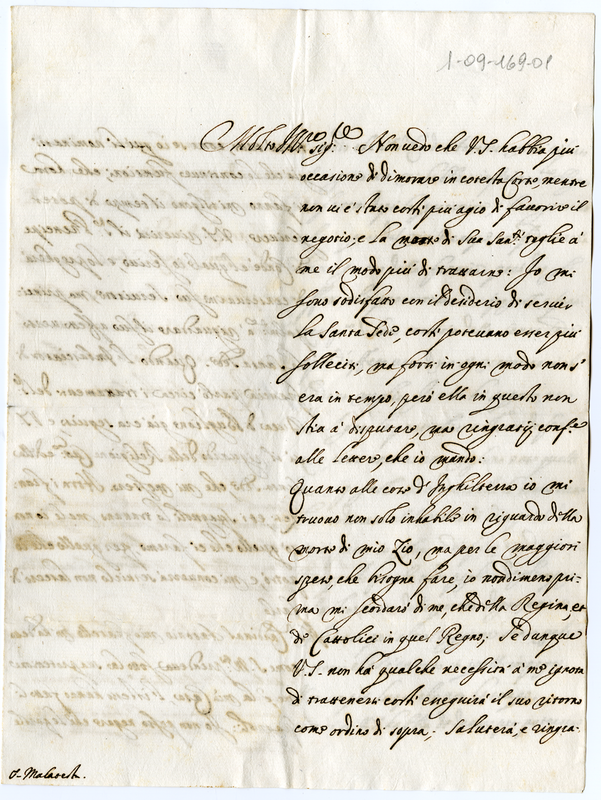 1-09-169-01
Molto Ill.re sig.re Non vedo che V.S. habbia più
occasione di dimorare in cotesta Corte, mentre
non vi è stato costì più agio di favorire il
negotio; e la morte di Sua Sant.à toglie à
me il modo più di trattarne: Io mi
sono sodisfatto con il desiderio di servir
la Santa Sede, costì potevano esser più
solleciti, ma forsi in ogni modo non s'
era in tempo, però ella in questo non
stia à disputare, ma ringratij conf.e
alle lettere, che io mando:
Quanto alle cose d'Inghilterra io mi
truovo non solo inhabile in riguardo della
morte di mio Zio, ma per le maggiori
spese, che bisogna fare, io nondimeno pri-
ma mi scordarò di me, che della Regina, et
de Cattolici in quel Regno; Se dunque
V.S. non hà qualche necessità à me ignota
di trattenersi costì esseguirà il suo ritorno
come ordino di sopra; Saluterà, e ringra-
S. Malatest.